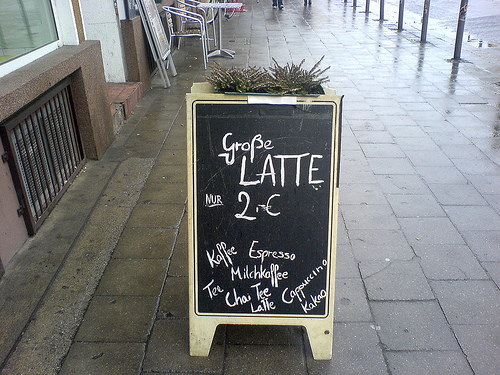 Große
LATTE
NUR
2,-€
Kaffee Espresso
Milchkaffee
Tee Chai Tee Cappuccino
Latte Kakao